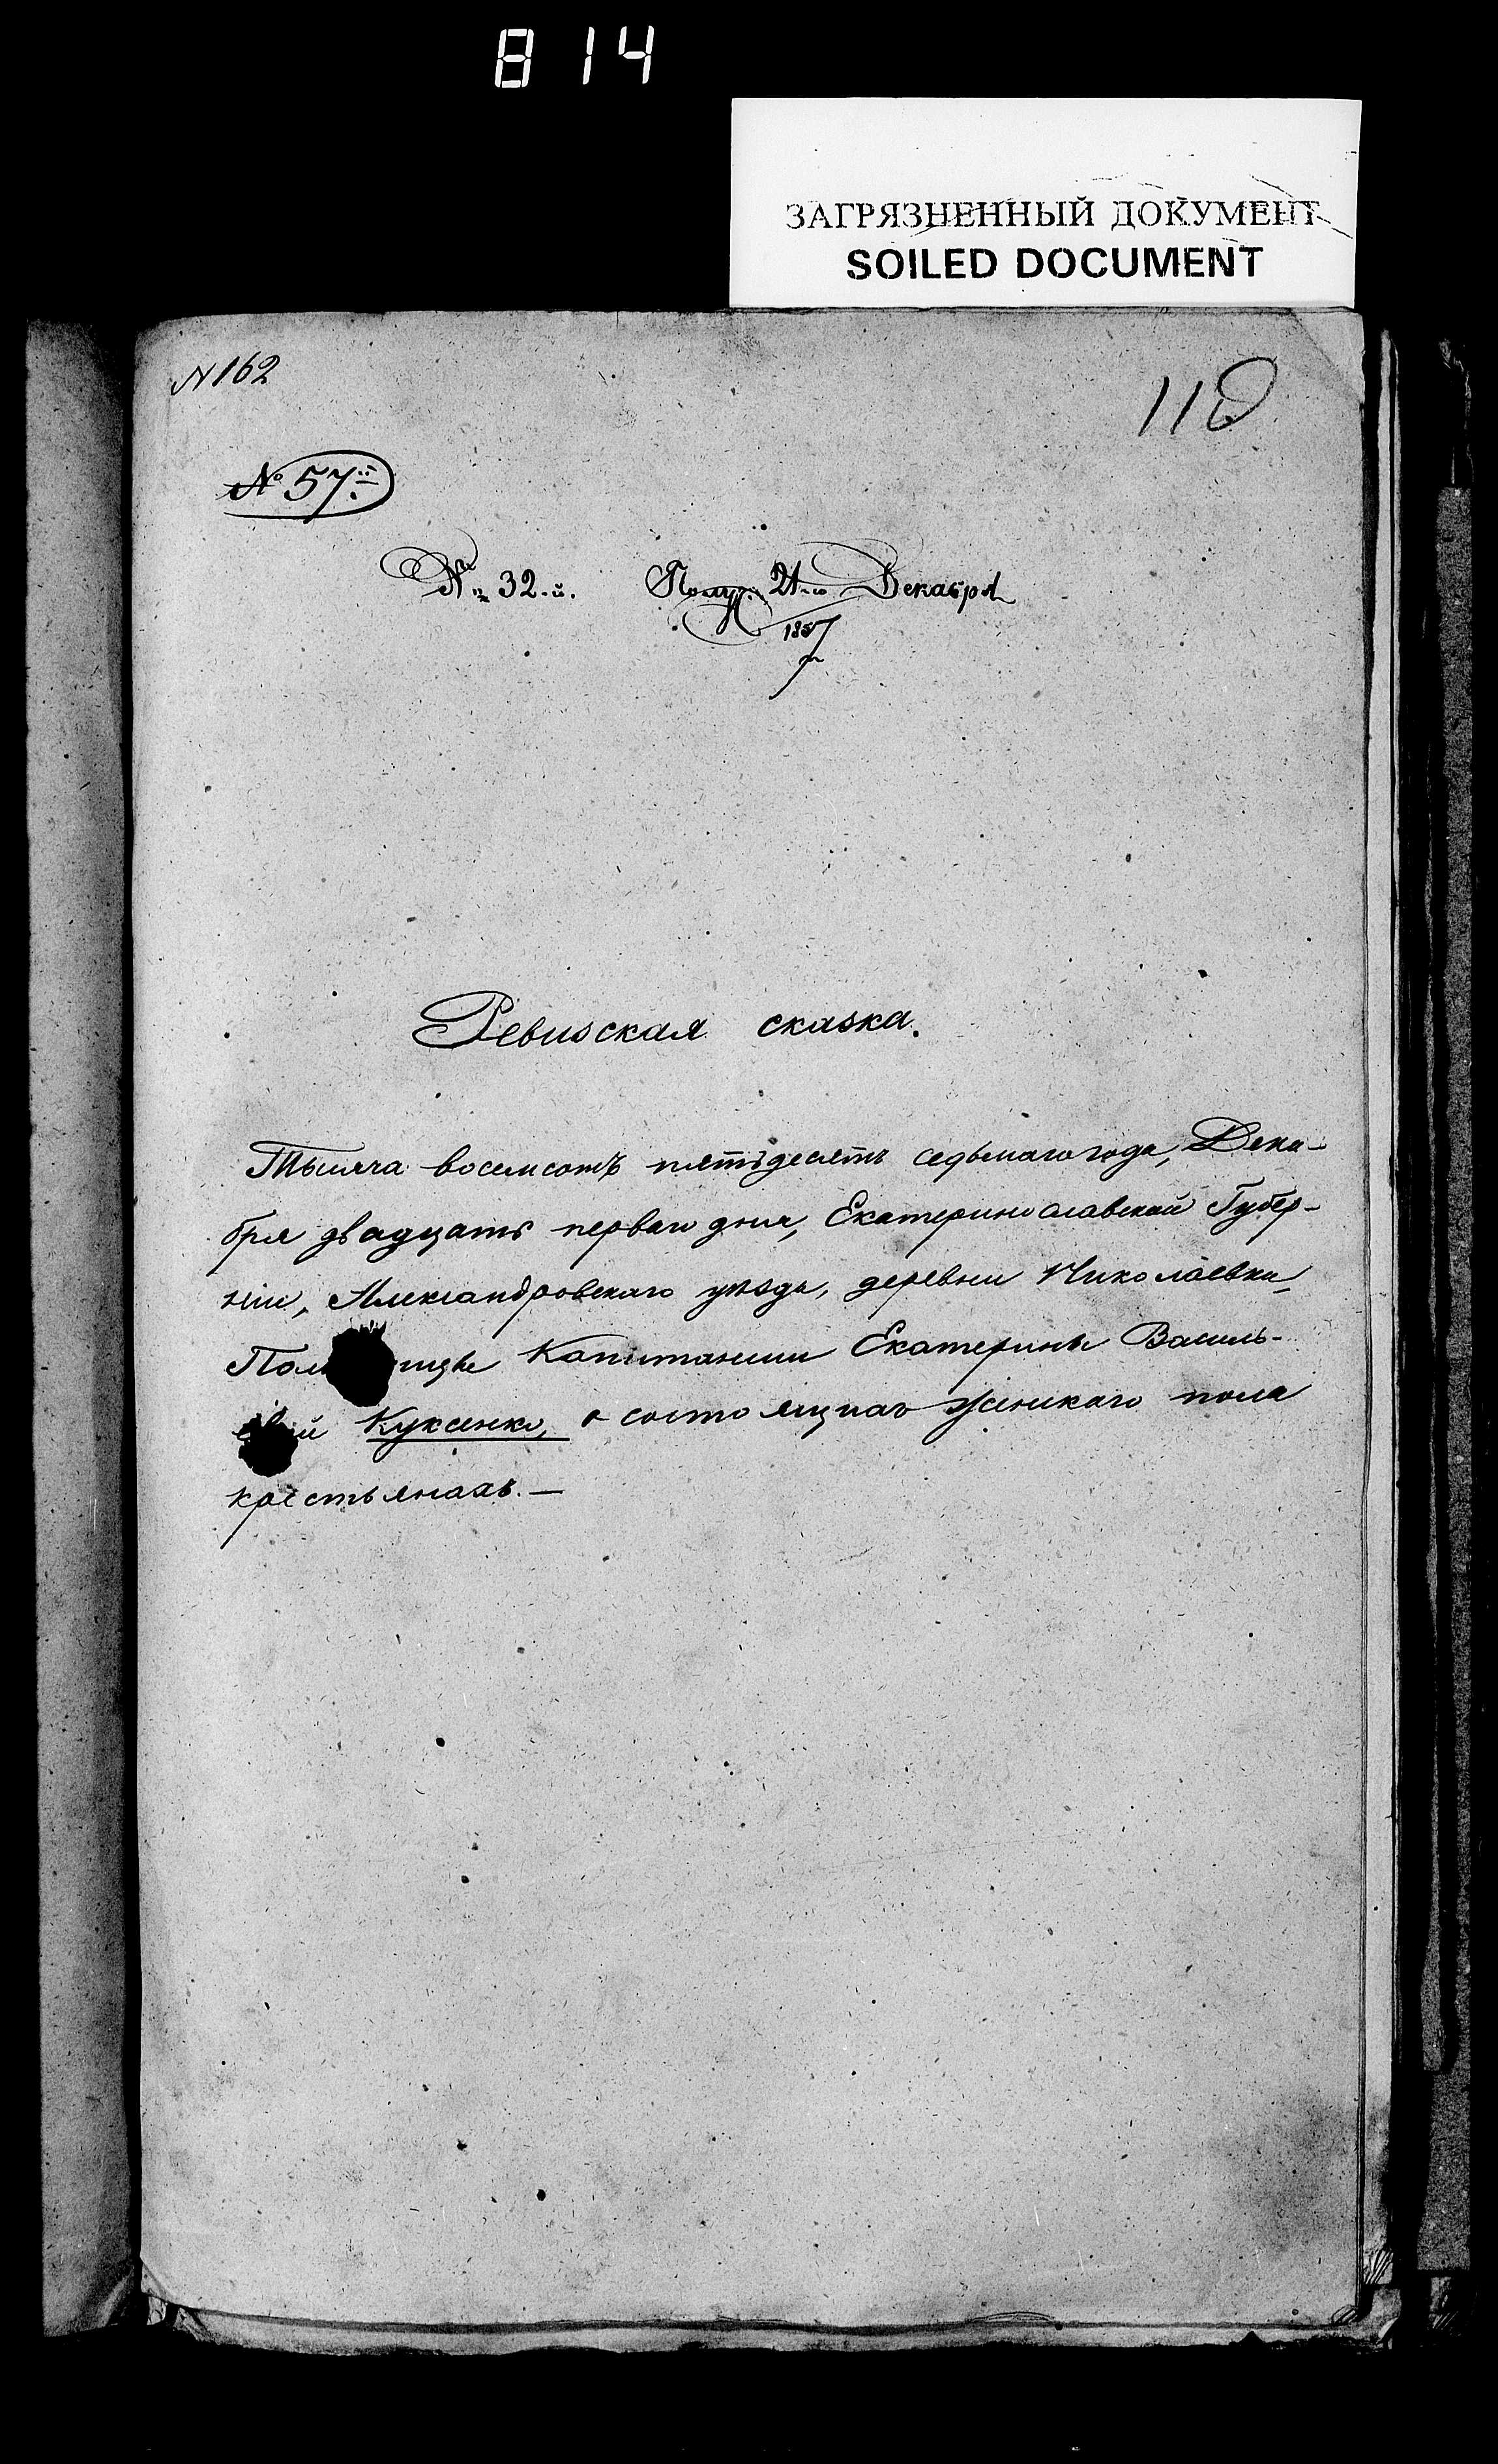 814
ЗАГРЯЗНЕННЫЙ ДОКУМЕНТ
SOILED DOCUMENT
N 162
118
№ 57й
№ 32-й. Получ. 21-го Декабря
1857
Ревизская сказка.
Тысяча восемсотъ пятьдесятъ седьмаго года, Дека-
бря двадцать перваго дня, Екатеринославской Губер-
ніи, Александровскаго уѣзда, деревни Николаевки,
Капитанши Екатерины Василь-
евой Куксенко, о состоящихъ женскаго пола
крестьянахъ. —